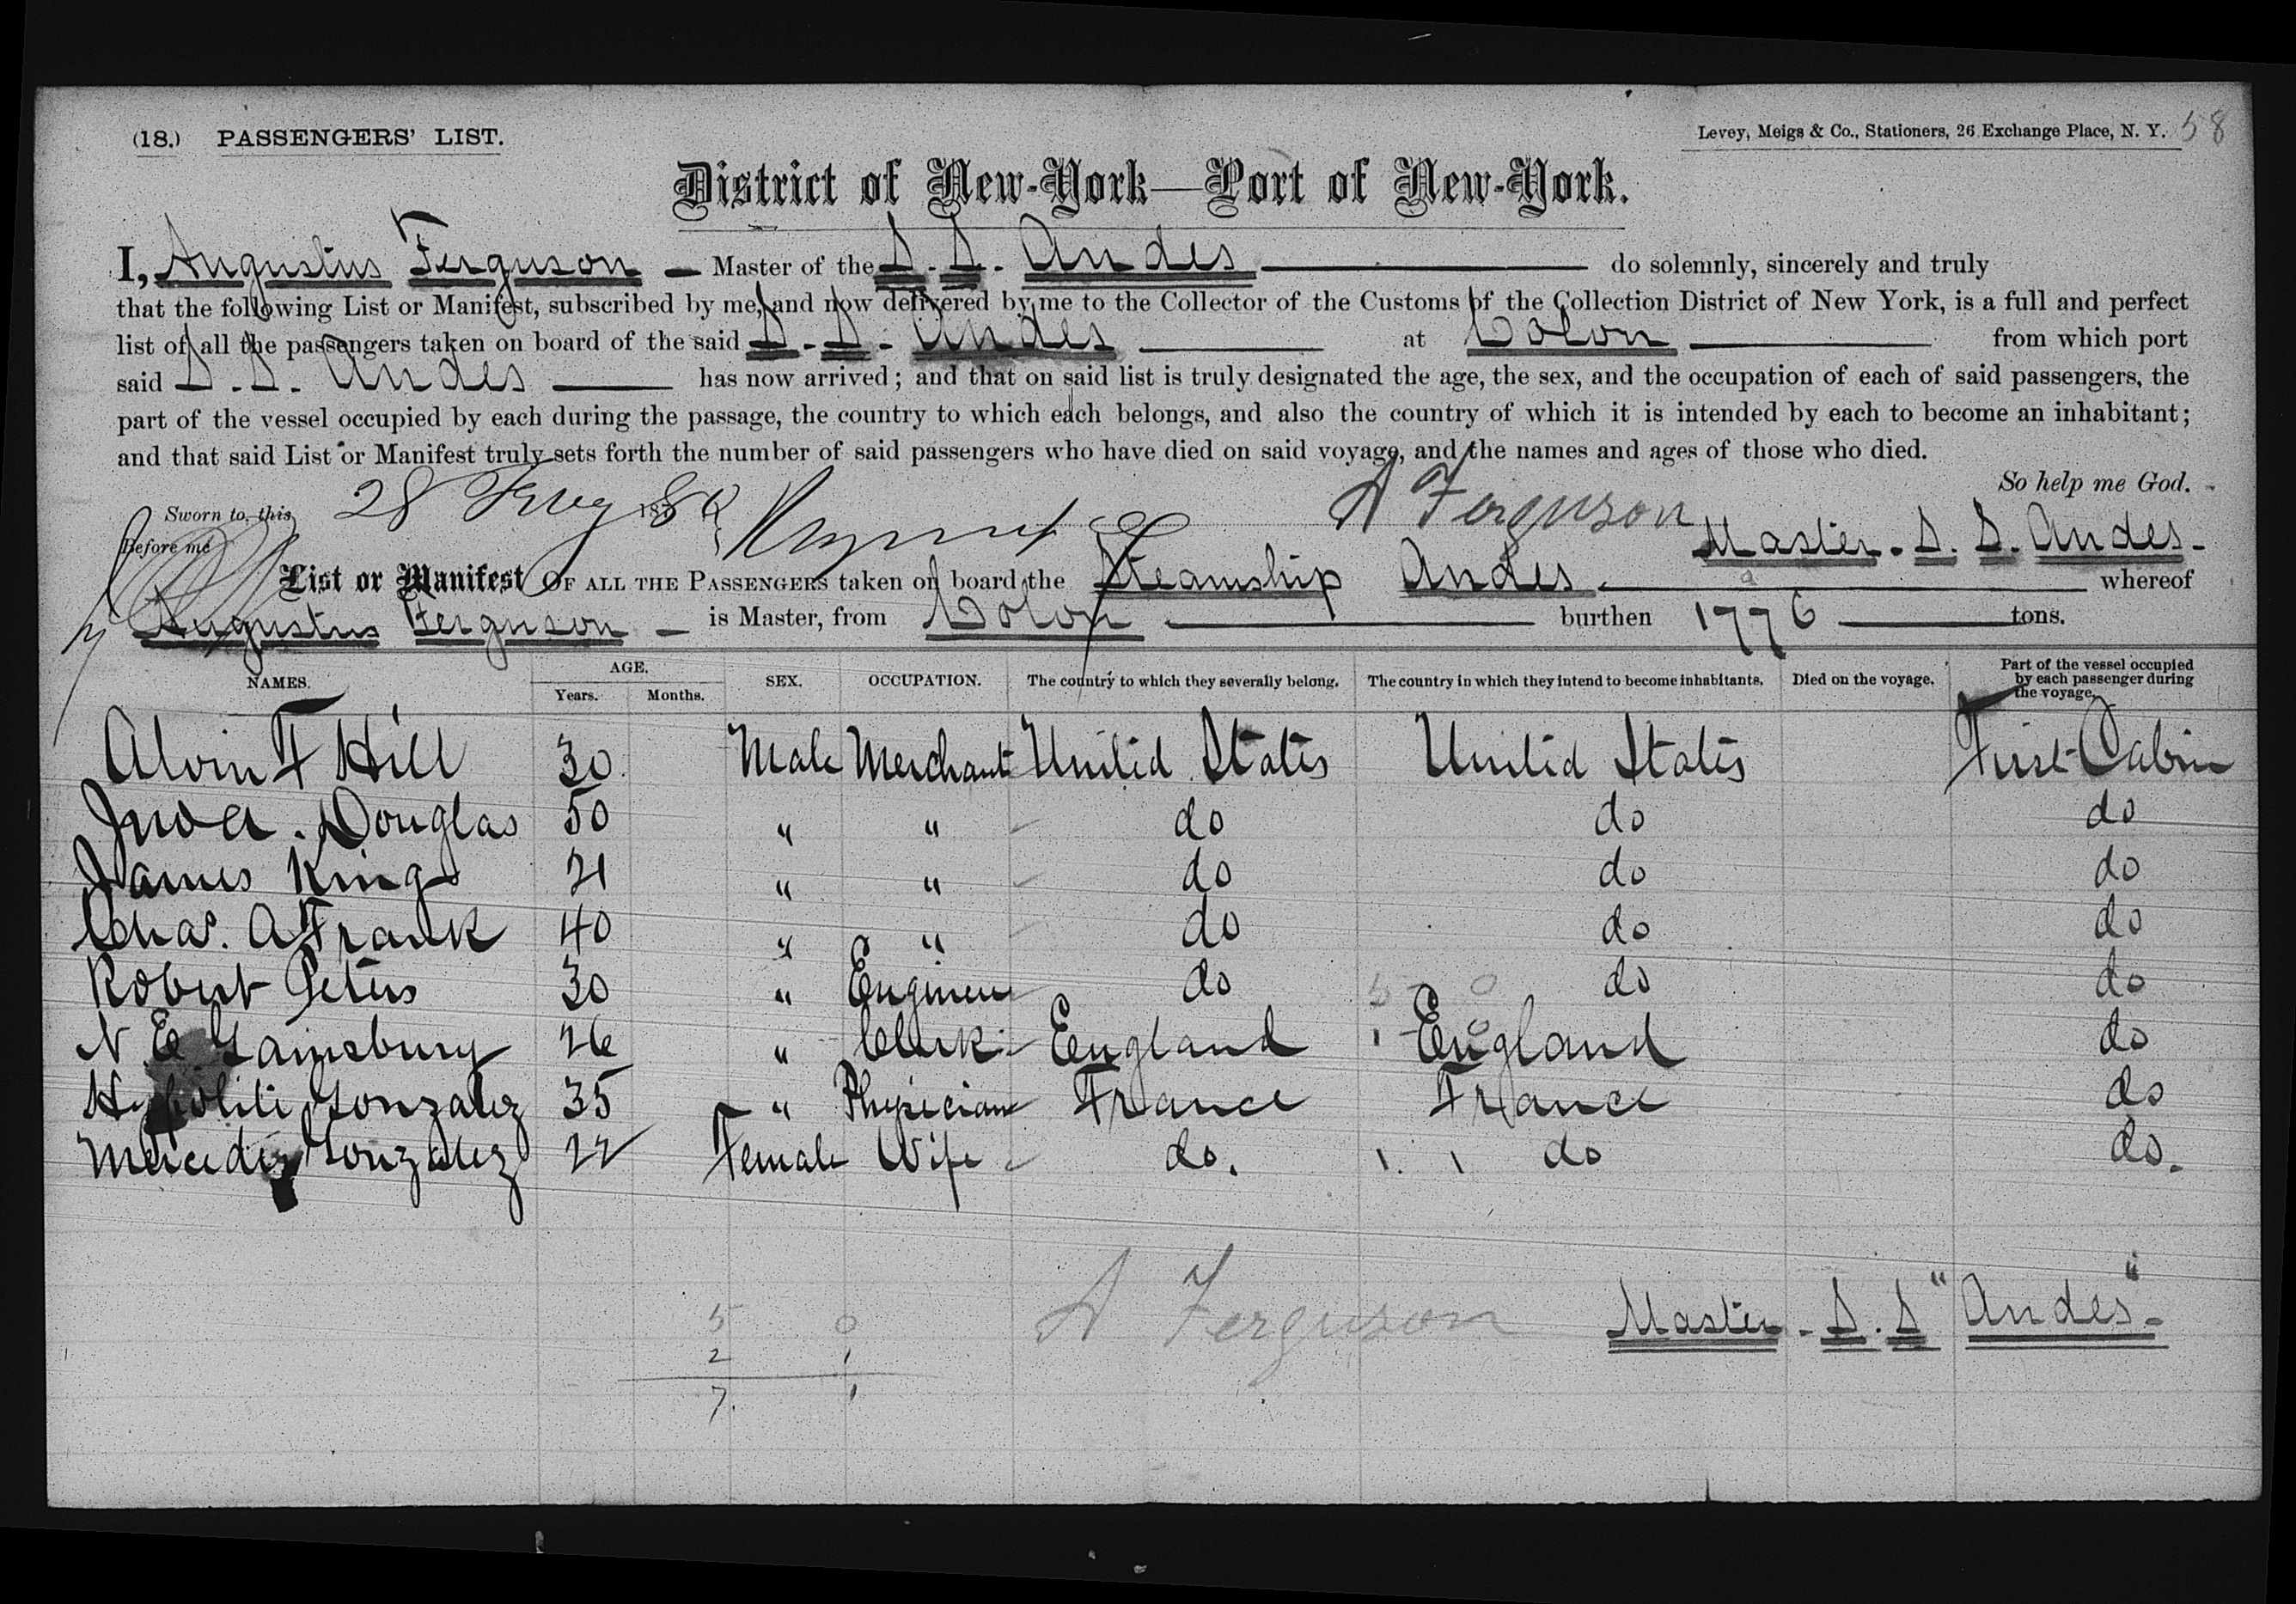 (18.) PASSENGERS' LIST.
Levey, Meigs & Co., Stationers, 26 Exchange Place, N. Y. 58
District of New-York—Port of New-York.
I, Augustus Ferguson — Master of the S. S. Andes — do solemnly, sincerely and truly
that the following List or Manifest, subscribed by me, and now delivered by me to the Collector of the Customs of the Collection District of New York, is a full and perfect
list of all the passengers taken on board of the said S. S. Andes — at Colon — from which port
said S. S. Andes — has now arrived; and that on said list is truly designated the age, the sex, and the occupation of each of said passengers, the
part of the vessel occupied by each during the passage, the country to which each belongs, and also the country of which it is intended by each to become an inhabitant;
and that said List or Manifest truly sets forth the number of said passengers who have died on said voyage, and the names and ages of those who died.
So help me God.
Sworn to, this 28 1880 A Ferguson
Before me Master. S. S. Andes-
List or Manifest OF ALL THE PASSENGERS taken on board the Steamship Andes. — whereof
Augustus Ferguson — is Master, from Colon — burthen 1776 — tons.
NAMES. AGE. Years. Months. SEX. OCCUPATION. The country to which they severally belong. The country in which they intend to become inhabitants. Died on the voyage. Part of the vessel occupied by each passenger during the voyage.
Alvin F Hill 30 Male Merchant United States United States First Cabin
Jno A. Douglas 50 " " do do do
James King 21 " " do do do
Chas. A Frank 40 " " do do do
Robert Peters 30 " Engineer do do do
N E Gainsbury 26 " Clerk England England do
Hypoliti Gonzalez 35 " Physician France France do
Mercedez Gonzalez 22 Female Wife do. do do.
A Ferguson Master - S. S "Andes"-
5 0
2 1
7. 1